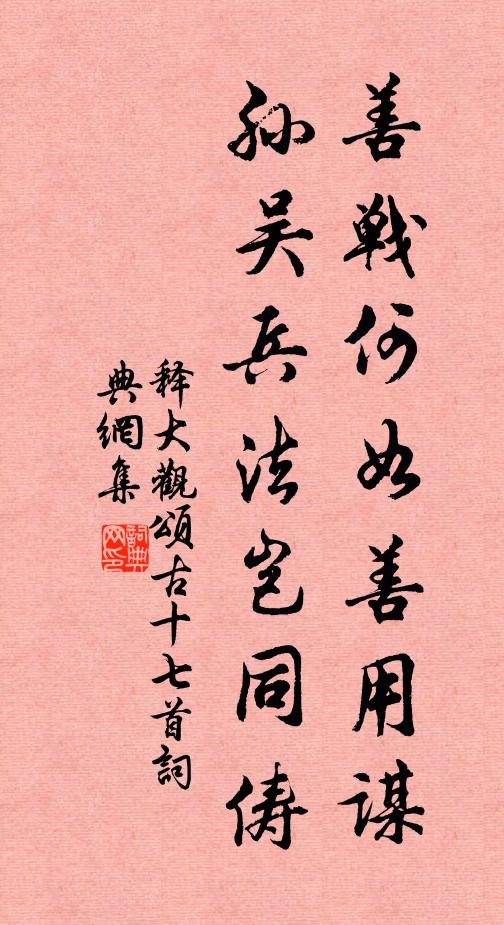 善戰何如善用謀
孫吴兵法豈同儔
释大觀頌古十七首詞
典網集
詞典
网印